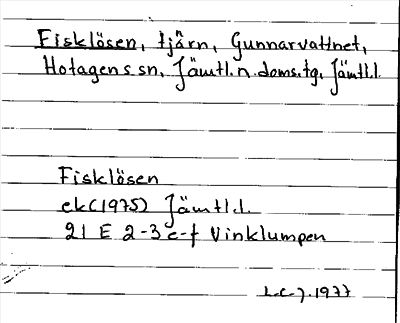 Fisklösen, tjärn, Gunnarvattnet,
Hotagens sn, Jämtl. n. doms. tg, Jämtl. l.
Fisklösen
ek (1975) Jämtl. l.
21 E 2-3 e-f Vinklumpen
1977